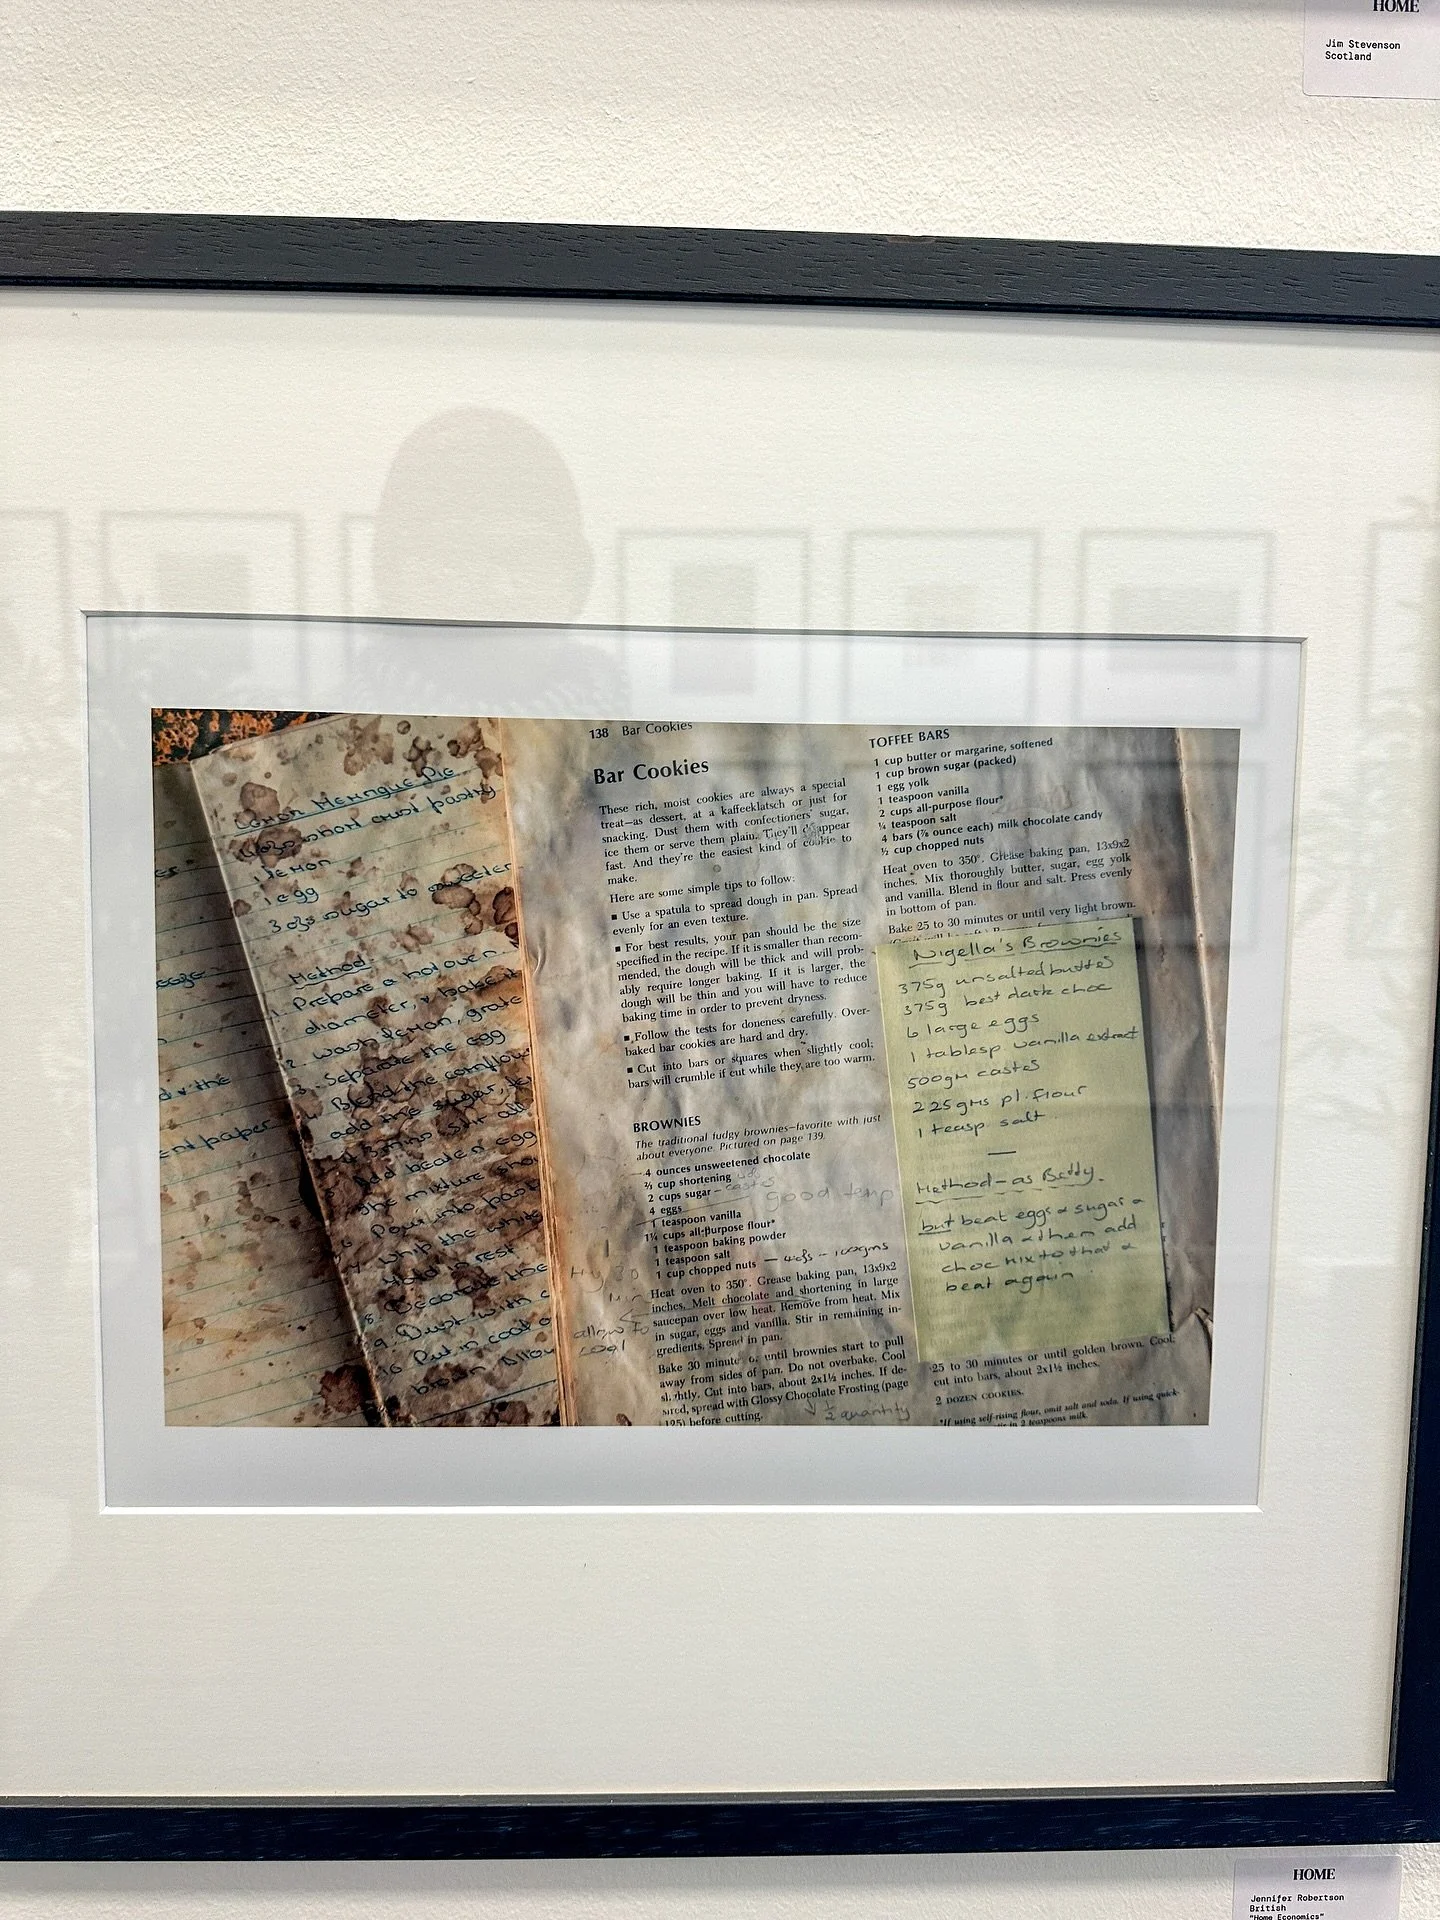 HOME
Jim Stevenson
Scotland
Lemon Meringue Pie
short crust pastry
1 lemon
1 egg
3 ozs sugar to sweeten
Method
1. Prepare a hot oven
diameter, & bake
2. wash lemon, grate
3. Separate the egg
4. Blend the cornflour
add the sugar,
Stir
5. Add beaten egg
the mixture
6. Pour into
7. whip the white
8. Decorate the
9. Dust with
10 Put in cool
brown
d v the
paper
138 Bar Cookies
Bar Cookies
These rich, moist cookies are always a special
treat—as dessert, at a kaffeeklatsch or just for
snacking. Dust them with confectioners' sugar,
ice them or serve them plain. They'll disappear
fast. And they're the easiest kind of cookie to
make.
Here are some simple tips to follow:
■ Use a spatula to spread dough in pan. Spread
evenly for an even texture.
■ For best results, your pan should be the size
specified in the recipe. If it is smaller than recom-
mended, the dough will be thick and will prob-
ably require longer baking. If it is larger, the
dough will be thin and you will have to reduce
baking time in order to prevent dryness.
■ Follow the tests for doneness carefully. Over-
baked bar cookies are hard and dry.
■ Cut into bars or squares when slightly cool;
bars will crumble if cut while they are too warm.
BROWNIES
The traditional fudgy brownies—favorite with just
about everyone. Pictured on page 139.
4 ounces unsweetened chocolate
⅔ cup shortening
2 cups sugar – castor
4 eggs good temp
1 teaspoon vanilla
1¼ cups all-purpose flour*
1 teaspoon baking powder
1 teaspoon salt
1 cup chopped nuts — 4ozs – 100gms
Heat oven to 350°. Grease baking pan, 13x9x2
inches. Melt chocolate and shortening in large
saucepan over low heat. Remove from heat. Mix
in sugar, eggs and vanilla. Stir in remaining in-
gredients. Spread in pan.
allow to
cool
Bake 30 minutes or until brownies start to pull
away from sides of pan. Do not overbake. Cool
slightly. Cut into bars, about 2x1½ inches. If de-
sired, spread with Glossy Chocolate Frosting (page
125) before cutting.
½ quantity
TOFFEE BARS
1 cup butter or margarine, softened
1 cup brown sugar (packed)
1 egg yolk
1 teaspoon vanilla
2 cups all-purpose flour*
¼ teaspoon salt
4 bars (⅞ ounce each) milk chocolate candy
½ cup chopped nuts
Heat oven to 350°. Grease baking pan, 13x9x2
inches. Mix thoroughly butter, sugar, egg yolk
and vanilla. Blend in flour and salt. Press evenly
in bottom of pan.
Bake 25 to 30 minutes or until very light brown.
Nigella's Brownies
375g unsalted butter
375g best dark choc
6 large eggs
1 tablesp vanilla extract
500gm castor
225gms pl. flour
1 teasp salt
—
Method – as Betty.
but beat eggs & sugar &
vanilla & then add
choc mix to that &
beat again
25 to 30 minutes or until golden brown. Cool;
cut into bars, about 2x1½ inches.
2 DOZEN COOKIES.
*If using self-rising flour, omit salt and soda. If using quick-
in 2 teaspoons milk.
HOME
Jennifer Robertson
British
"Home Economics"